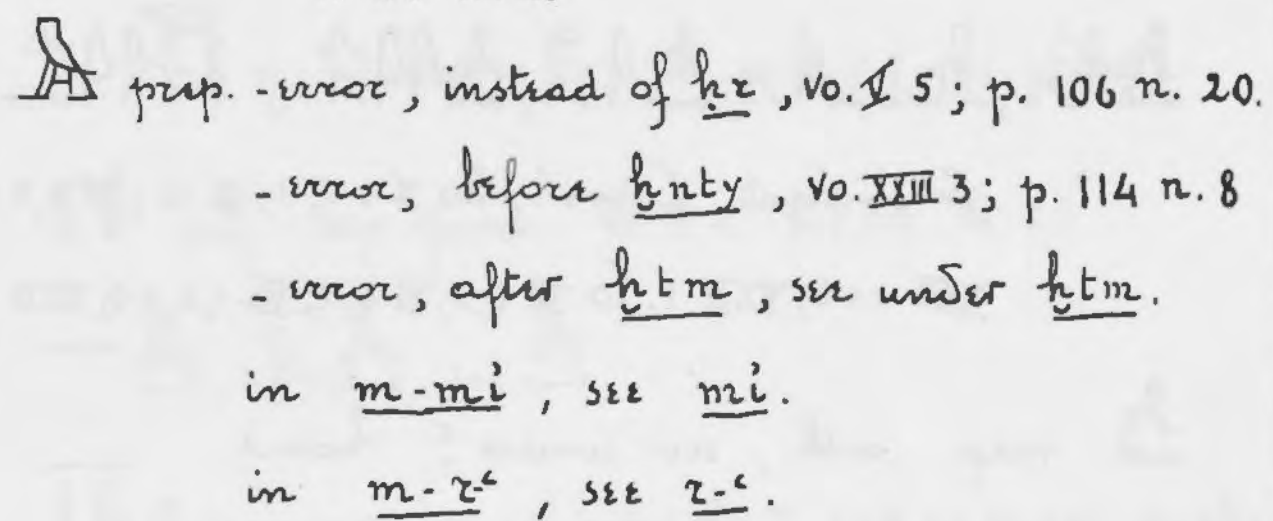 𓅓 prep. -error, instead of ḥr, vo. V 5; p. 106 n. 20.
-error, before ḫnty, vo. XXIII 3; p. 114 n. 8
-error, after ḫtm, see under ḫtm.
in m-mỉ, see mỉ.
in m-r-ꜥ, see r-ꜥ.